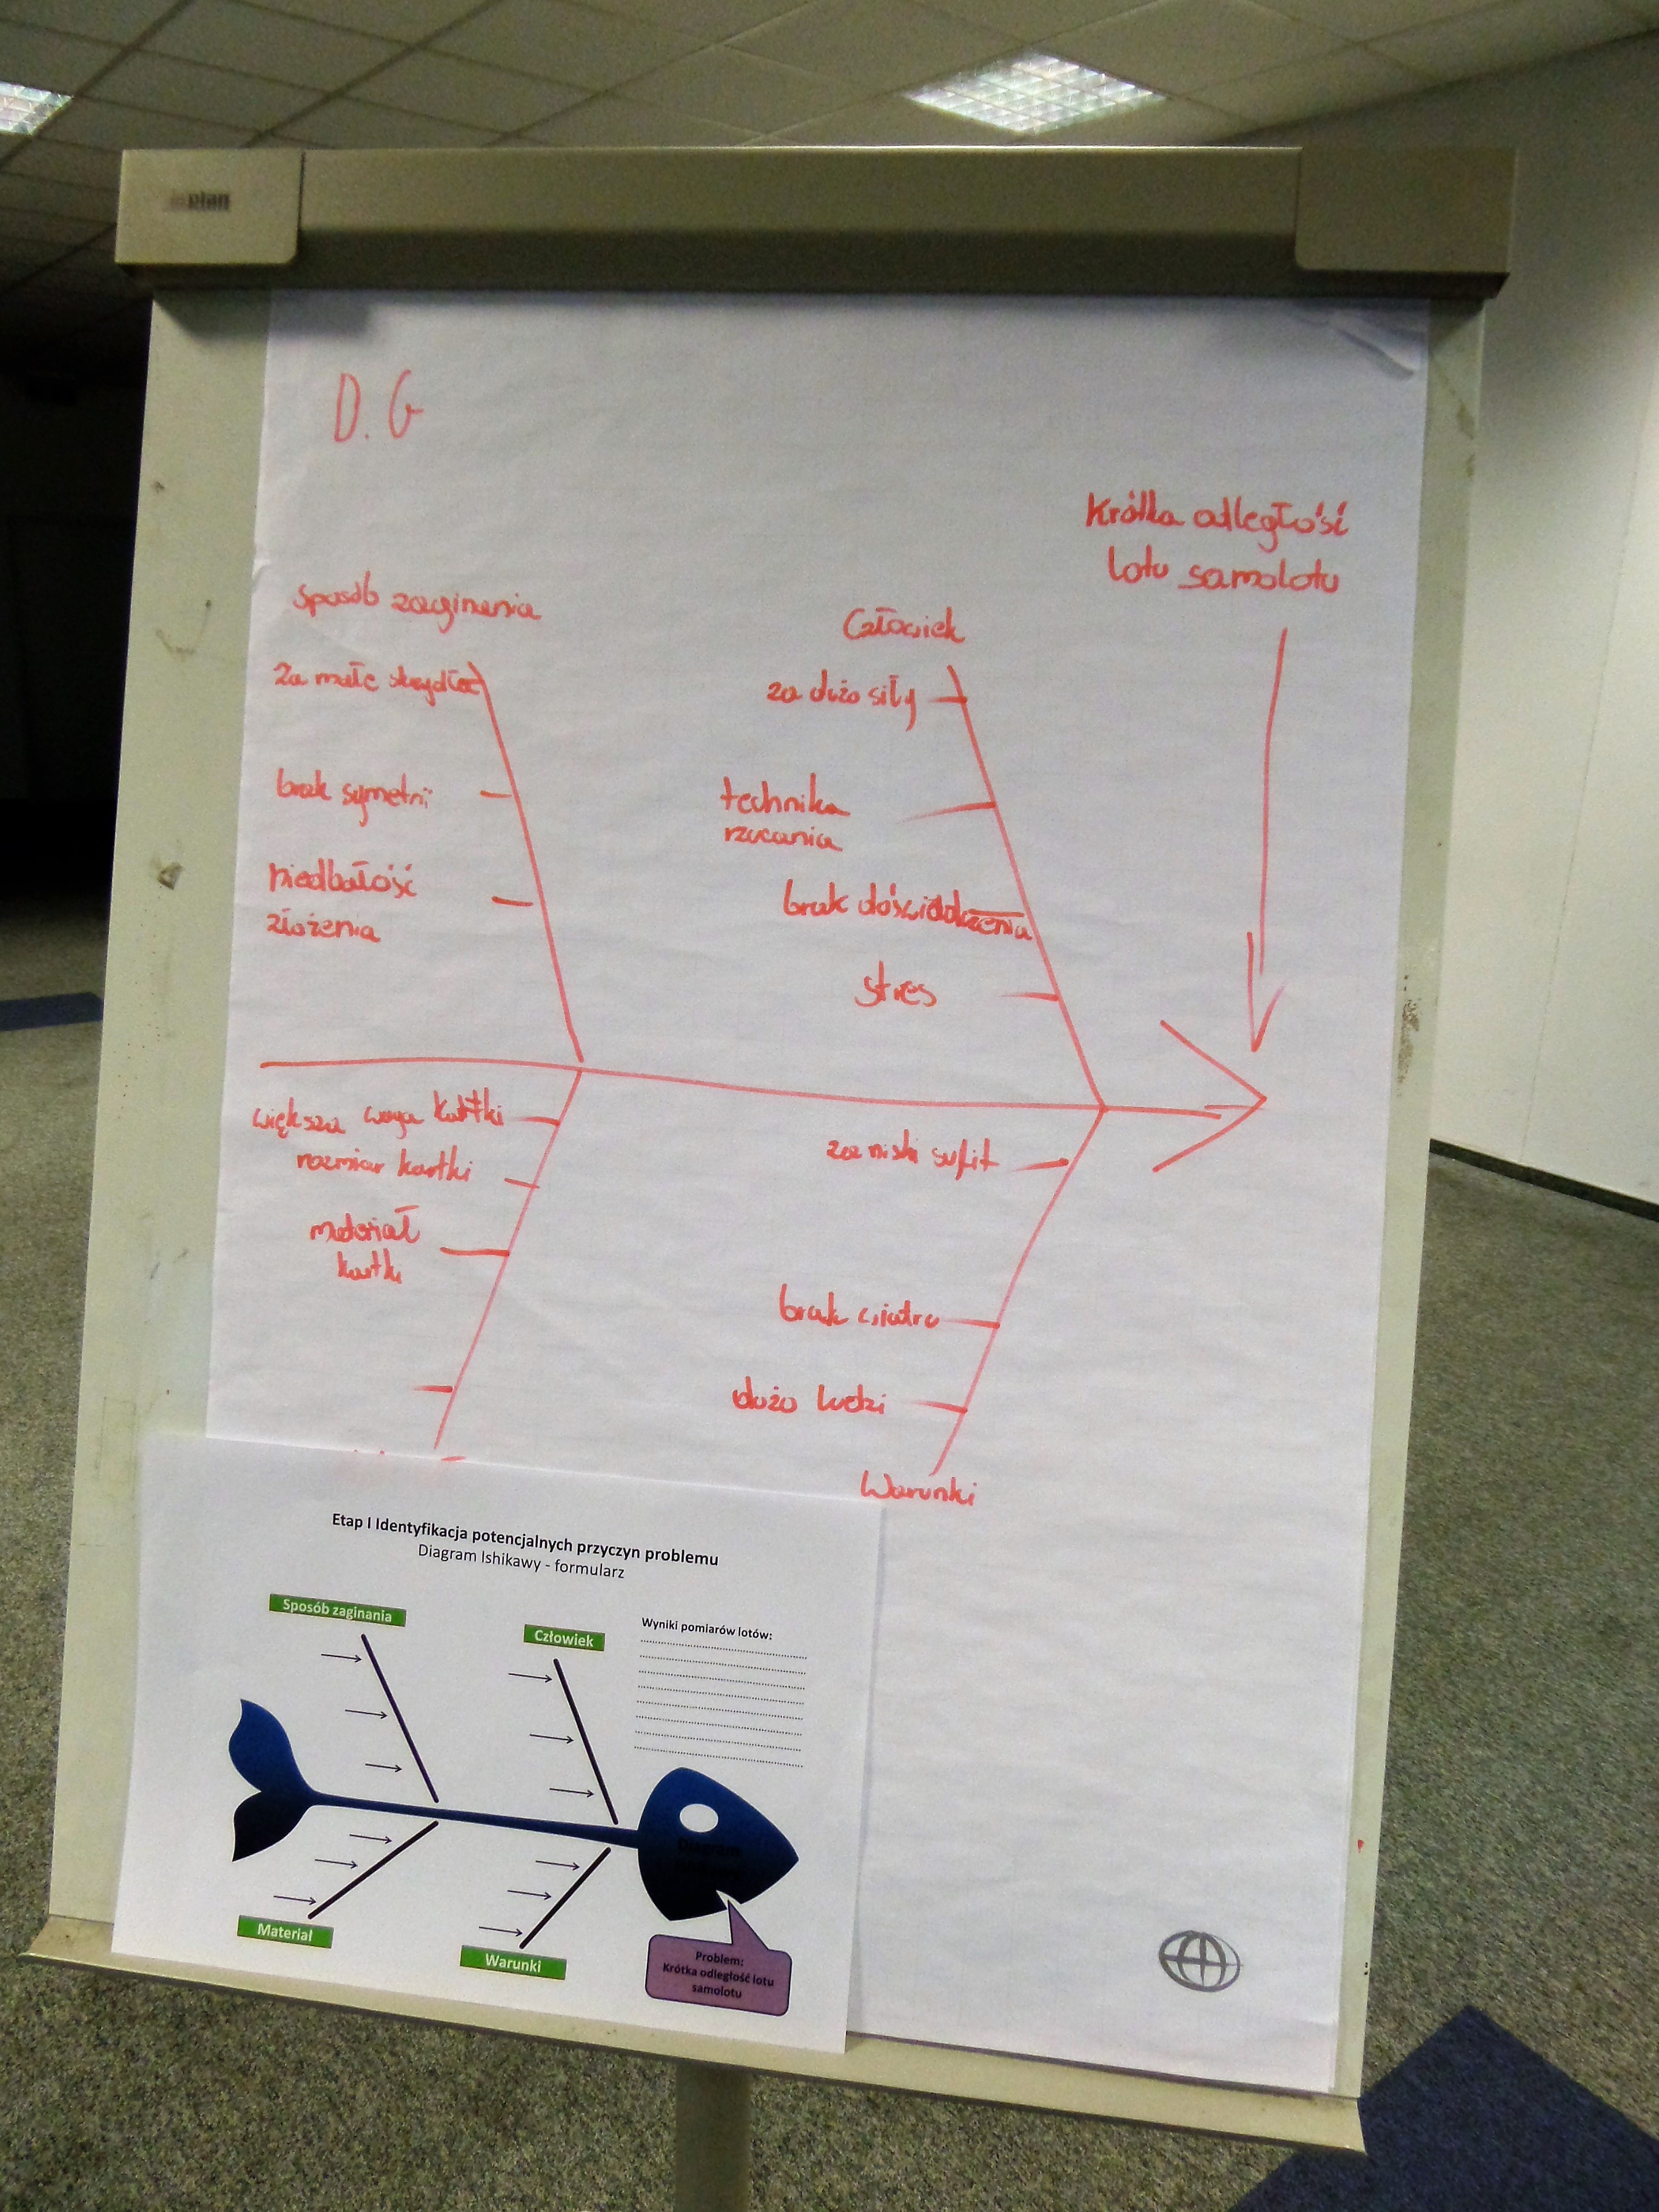 plan
D. G
Krótka odległość
lotu samolotu
Sposób zaginania
Człowiek
za małe skrzydła
za dużo siły
brak symetrii
technika
rzucania
niedbałość
złożenia
brak doświadczenia
stres
większa waga kartki
rozmiar kartki
materiał
kartki
za niski sufit
brak wiatru
dużo ludzi
Warunki
Etap I Identyfikacja potencjalnych przyczyn problemu
Diagram Ishikawy - formularz
Sposób zaginania
Człowiek
Wyniki pomiarów lotów:
Diagram
Materiał
Warunki
Problem:
Krótka odległość lotu
samolotu